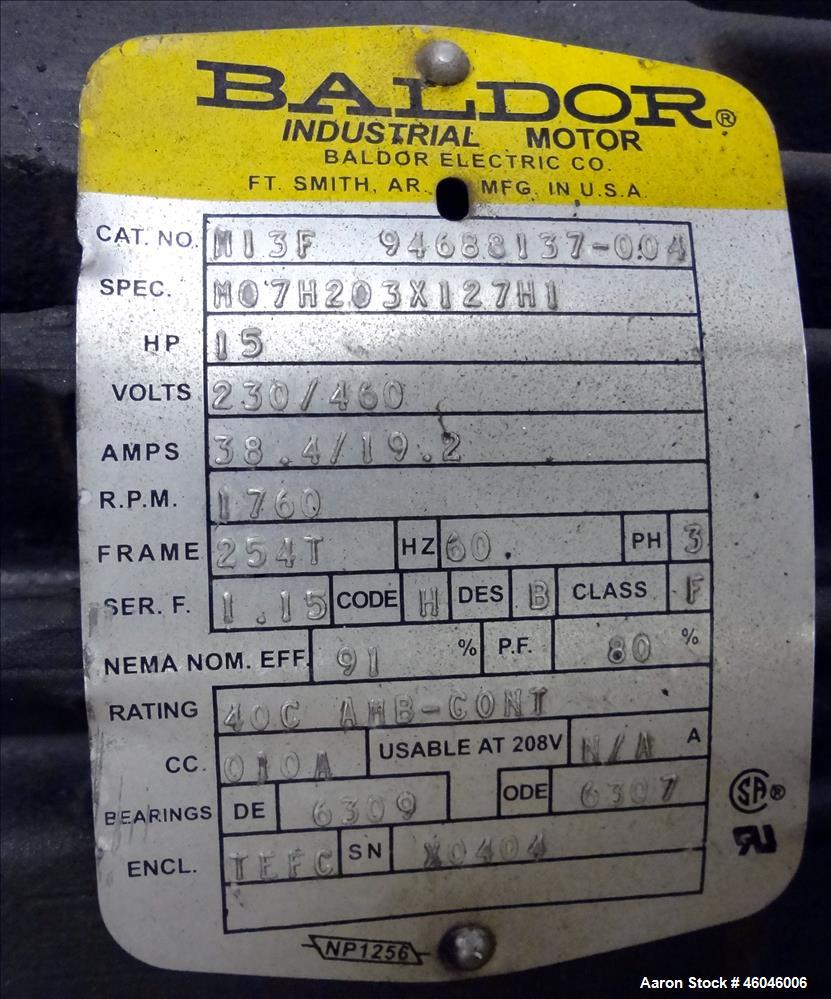 BALDOR®
INDUSTRIAL MOTOR
BALDOR ELECTRIC CO.
FT. SMITH, AR. MFG. IN U.S.A.
CAT. NO. M13F 94688137-004
SPEC. M07H203X127H1
HP 15
VOLTS 230/460
AMPS 38.4/19.2
R.P.M. 1760
FRAME 254T HZ 60. PH 3
SER. F. 1.15 CODE H DES B CLASS F
NEMA NOM. EFF. 91 % P.F. 80 %
RATING 40C AMB-CONT
CC. 010A USABLE AT 208V N/A A
BEARINGS DE 6309 ODE 6307
ENCL. TEFC SN X0404
SA®
RU
NP1256
Aaron Stock # 46046006